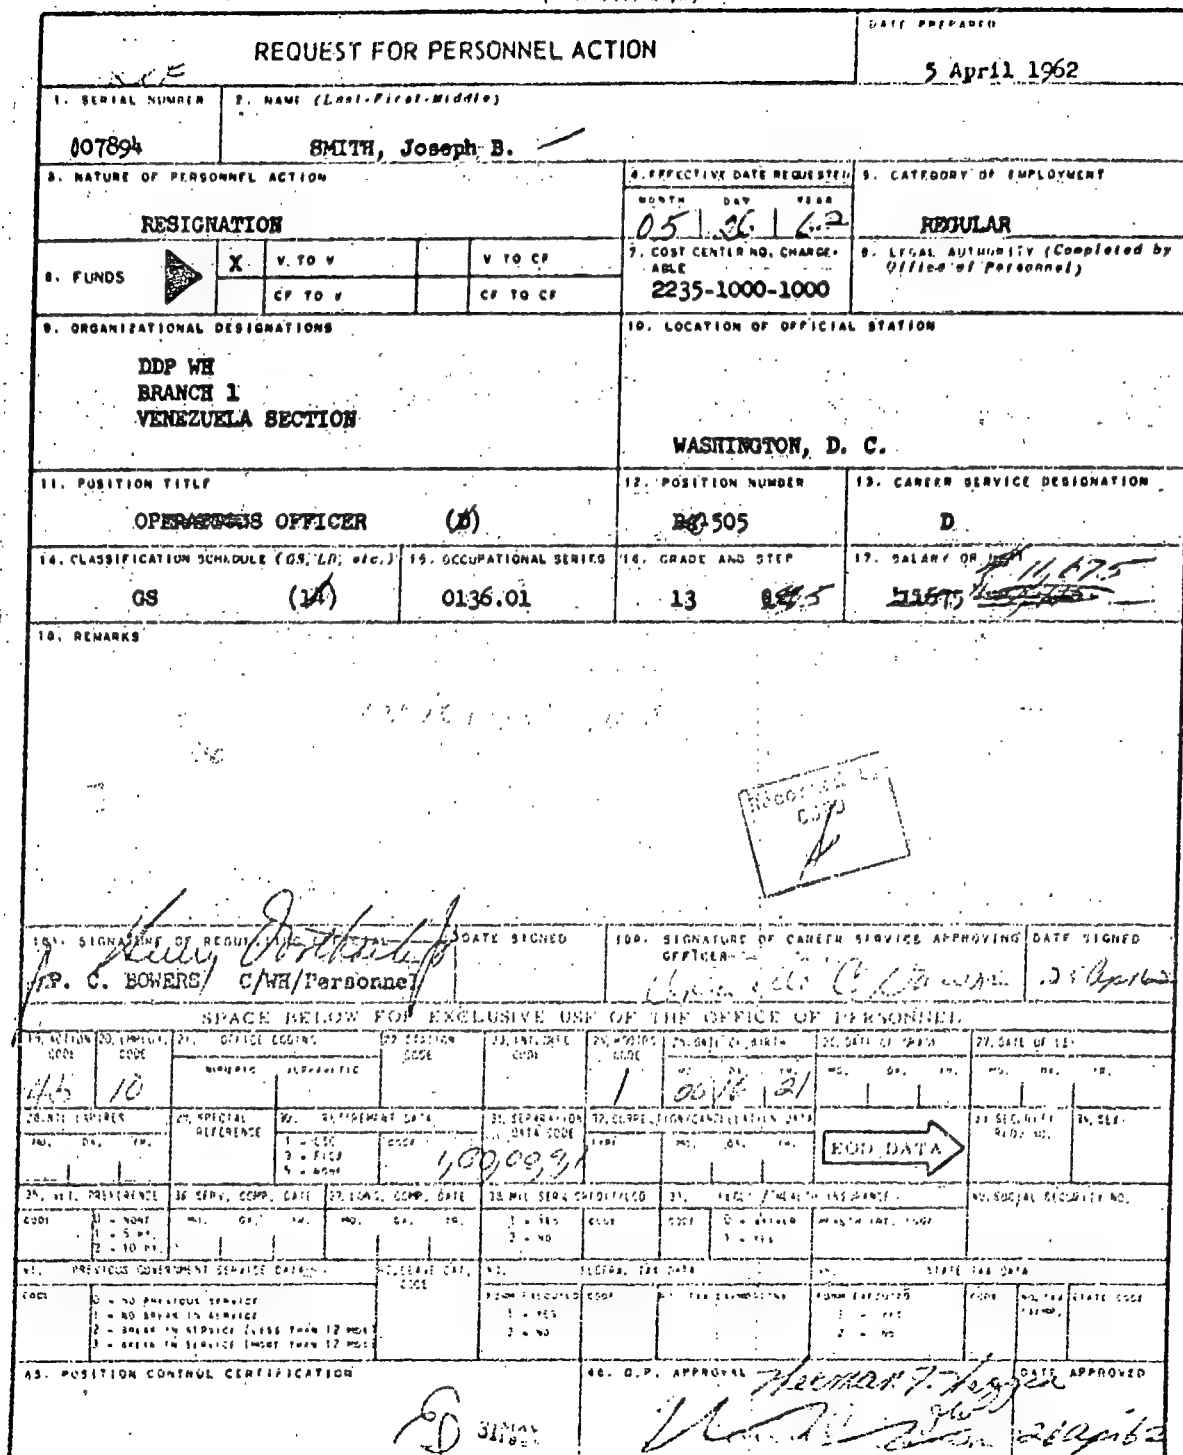 REQUEST FOR PERSONNEL ACTION
DATE PREPARED
5 April 1962
1. SERIAL NUMBER
2. NAME (Last-First-Middle)
007894
SMITH, Joseph B.
3. NATURE OF PERSONNEL ACTION
4. EFFECTIVE DATE REQUESTED
5. CATEGORY OF EMPLOYMENT
MONTH DAY YEAR
RESIGNATION
05 26 62
REGULAR
6. FUNDS
X
V. TO V
V TO CF
CF TO V
CF TO CF
7. COST CENTER NO. CHARGE-
ABLE
2235-1000-1000
8. LEGAL AUTHORITY (Completed by
Office of Personnel)
9. ORGANIZATIONAL DESIGNATIONS
10. LOCATION OF OFFICIAL STATION
DDP WH
BRANCH 1
VENEZUELA SECTION
WASHINGTON, D. C.
11. POSITION TITLE
12. POSITION NUMBER
13. CAREER SERVICE DESIGNATION
OFFICER
505
D
14. CLASSIFICATION SCHEDULE (GS, LB, etc.)
15. OCCUPATIONAL SERIES
16. GRADE AND STEP
17. SALARY OR
GS (14)
0136.01
13 5
11,675
18. REMARKS
18A. SIGNATURE OF REQUESTING OFFICIAL
DATE SIGNED
18B. SIGNATURE OF CAREER SERVICE APPROVING
OFFICER
DATE SIGNED
P. C. BOWERS C/WH/Personnel
25 Apr 62
SPACE BELOW FOR EXCLUSIVE USE OF THE OFFICE OF PERSONNEL
19. ACTION
CODE
20. EMPLOY.
CODE
21. OFFICE CODING
NUMERIC ALPHABETIC
22. STATION
CODE
25. DATE OF BIRTH
MO. DA. YR.
26. DATE OF GRADE
MO. DA. YR.
27. DATE OF LEI
MO. DA. YR.
45 10
1
21
28. NTE EXPIRES
MO. DA. YR.
29. SPECIAL
REFERENCE
30. RETIREMENT DATA
1 - CSC
3 - FICA
5 - NONE
CODE
31. SEPARATION
DATA CODE
32. CORRECTION/CANCELLATION DATA
TYPE
MO. DA. YR.
EOD DATA
33. SECURITY
REQ. NO.
34. SEX
35. VET. PREFERENCE
CODE
0 - NONE
1 - 5 PT.
2 - 10 PT.
36. SERV. COMP. DATE
MO. DA. YR.
37. LONG. COMP. DATE
MO. DA. YR.
38. MIL SERV CREDIT/LCD
1 - YES
2 - NO
CODE
39. FEGLI / HEALTH INSURANCE
CODE
0 - WAIVER
1 - YES
HEALTH INS. CODE
40. SOCIAL SECURITY NO.
41. PREVIOUS GOVERNMENT SERVICE DATA
CODE
0 - NO PREVIOUS SERVICE
1 - NO BREAK IN SERVICE
2 - BREAK IN SERVICE (LESS THAN 12 MOS)
3 - BREAK IN SERVICE (MORE THAN 12 MOS)
42. LEAVE CAT.
CODE
43. FEDERAL TAX DATA
FORM EXECUTED
1 - YES
2 - NO
CODE
NO. TAX EXEMPTIONS
44. STATE TAX DATA
FORM EXECUTED
1 - YES
2 - NO
CODE
NO. TAX
EXEMP.
STATE CODE
45. POSITION CONTROL CERTIFICATION
46. O.P. APPROVAL
DATE APPROVED